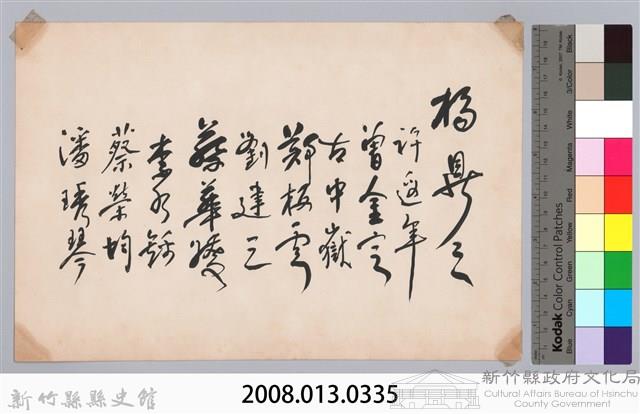 楊鼎之
許遠年
曾金定
古中嶽
鄭板雲
劉建三
蔡華燧
李永鈺
蔡榮均
潘瑀琴
Kodak Color Control Patches
Blue
Cyan
Green
Yellow
Red
Magenta
White
3/Color
Black
新竹縣縣史館
2008.013.0335
新竹縣政府文化局
Cultural Affairs Bureau of Hsinchu
County Government